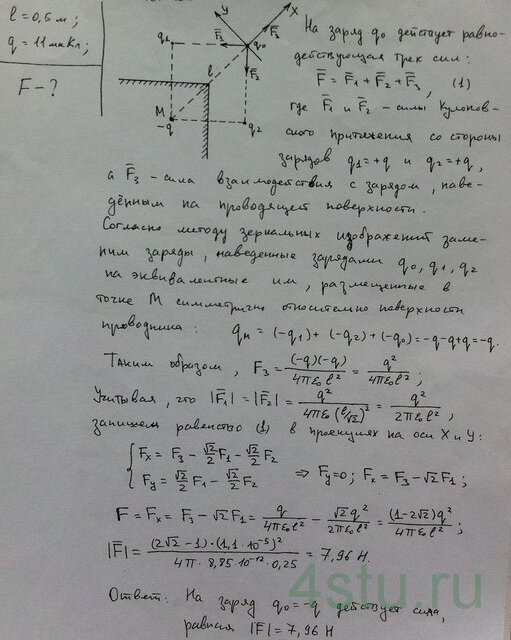 l = 0,5 м;
q = 11 мкКл;
F - ?
y
x
q₁
F̄₃
q₀
F̄₁
F̄₂
l
M
-q
q₂
На заряд q₀ действует равно-
действующая трех сил:
F̄ = F̄₁ + F̄₂ + F̄₃, (1)
где F̄₁ и F̄₂ - силы Кулонов-
ского притяжения со стороны
зарядов q₁=+q и q₂=+q,
а F̄₃ - сила взаимодействия с зарядом, наве-
дённым на проводящей поверхности.
Согласно методу зеркальных изображений заме-
ним заряды, наведенные зарядами q₀, q₁, q₂
на эквивалентные им, размещенные в
точке М симметрично относительно поверхности
проводника: qм = (-q₁) + (-q₂) + (-q₀) = -q-q+q = -q.
Таким образом, F₃ = (-q)(-q)/4πε₀l² = q²/4πε₀l²;
Учитывая, что |F̄₁| = |F̄₂| = q²/4πε₀(l/√2)² = q²/2πε₀l²,
запишем равенство (1) в проекциях на оси X и У:
{ Fx = F₃ - √2/2 F₁ - √2/2 F₂
Fy = √2/2 F₁ - √2/2 F₂ ⇒ Fy=0; Fx = F₃ - √2F₁;
F = Fx = F₃ - √2F₁ = q/4πε₀l² - √2q²/2πε₀l² = (1-2√2)q²/4πε₀l²;
|F̄| = (2√2-1)·(1,1·10⁻⁵)²/4π·8,85·10⁻¹²·0,25 = 7,96 Н.
Ответ: На заряд q₀=-q действует сила,
равная |F| = 7,96 Н
4stu.ru